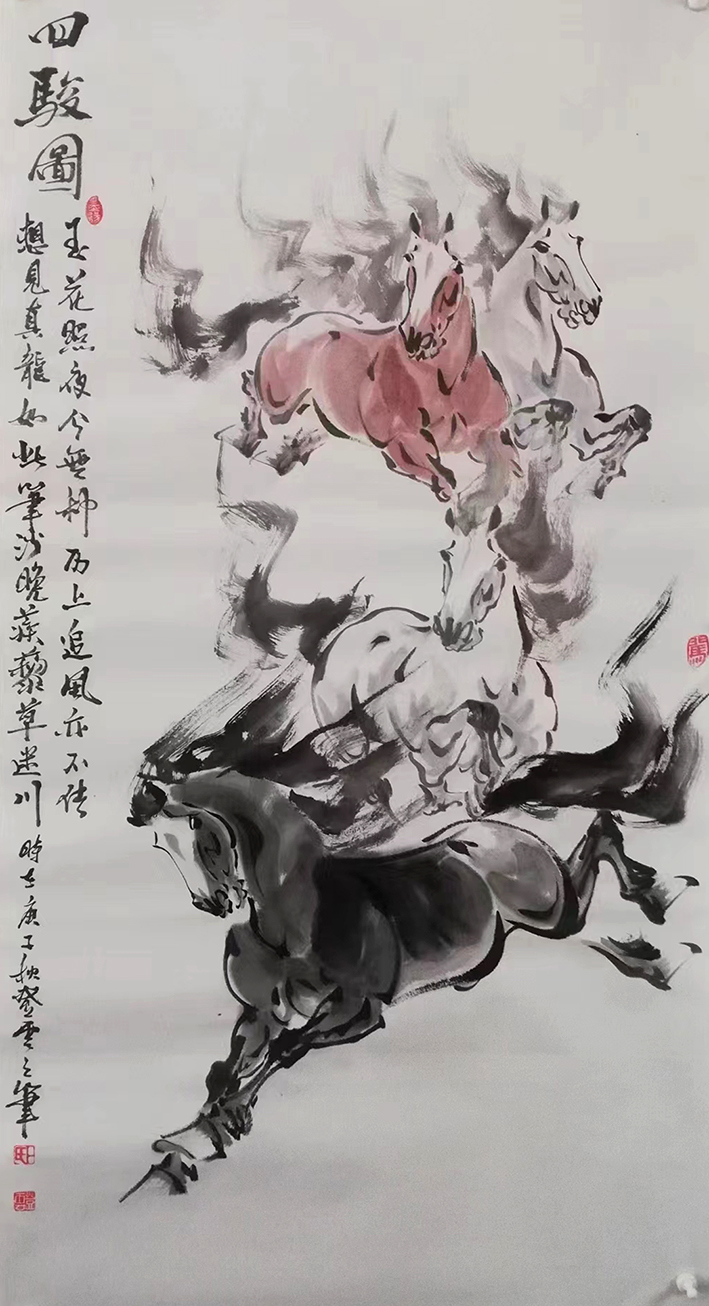 四駿圖
玉花照夜今無种历上追風亦不传
想見真龍如此筆沙晚蒺藜草迷川 時在庚子秋登雲之筆